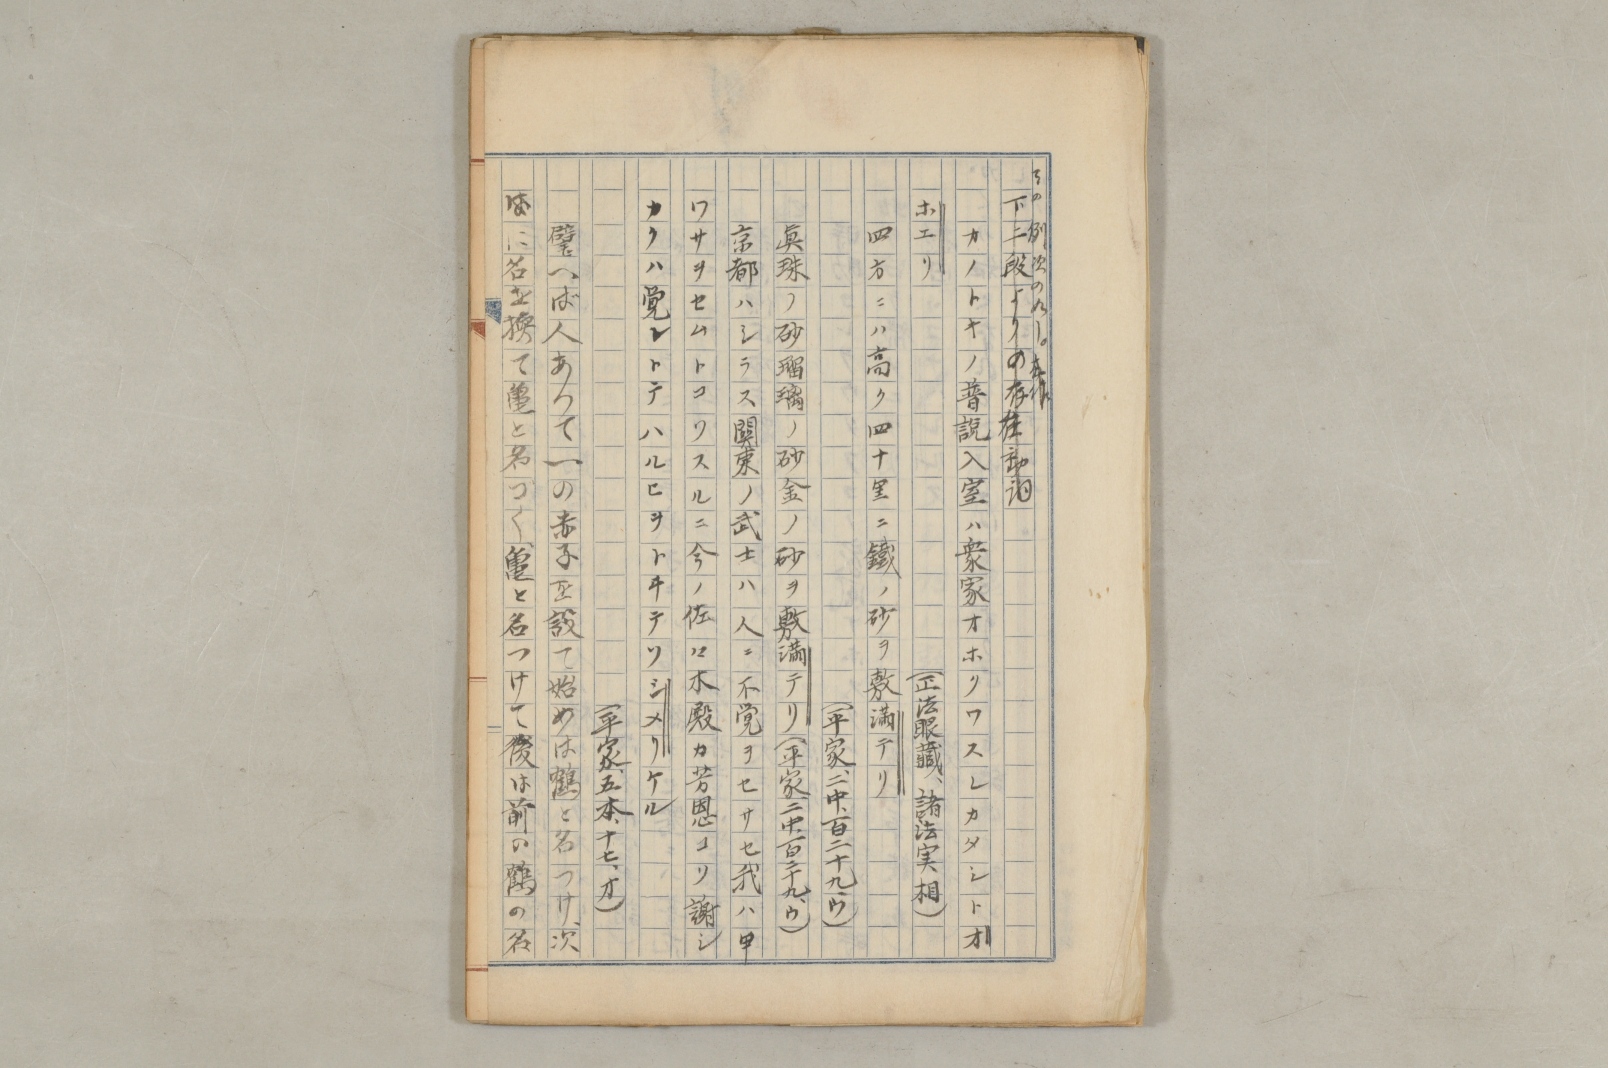 その例次の如し。
下二段よりの存在動詞
カノトキノ普説入室ハ衆家オホクワスレカタシトオ
ホエリ
(正法眼藏、諸法実相)
四方ニハ高ク四十里ニ鐵ノ砂ヲ敷満テリ
(平家、二中、百二十九、ウ)
眞珠ノ砂瑠璃ノ砂金ノ砂ヲ敷満テリ(平家、二中、百二十九、ウ)
京都ハシラス関東ノ武士ハ人ニ不覚ヲセサセ我ハ甲
ワサヲセムトコソスルニ今ノ佐々木殿カ芳恩コソ謝シ
カタハ覚レトテハルヒヲトキテソシメリケル
(平家、五本、十七、オ)
譬へば人あつて一の赤子を設て始めは鶴と名つけ、次
ほに名を換て亀と名つく、亀と名つけて後は前の鶴の名